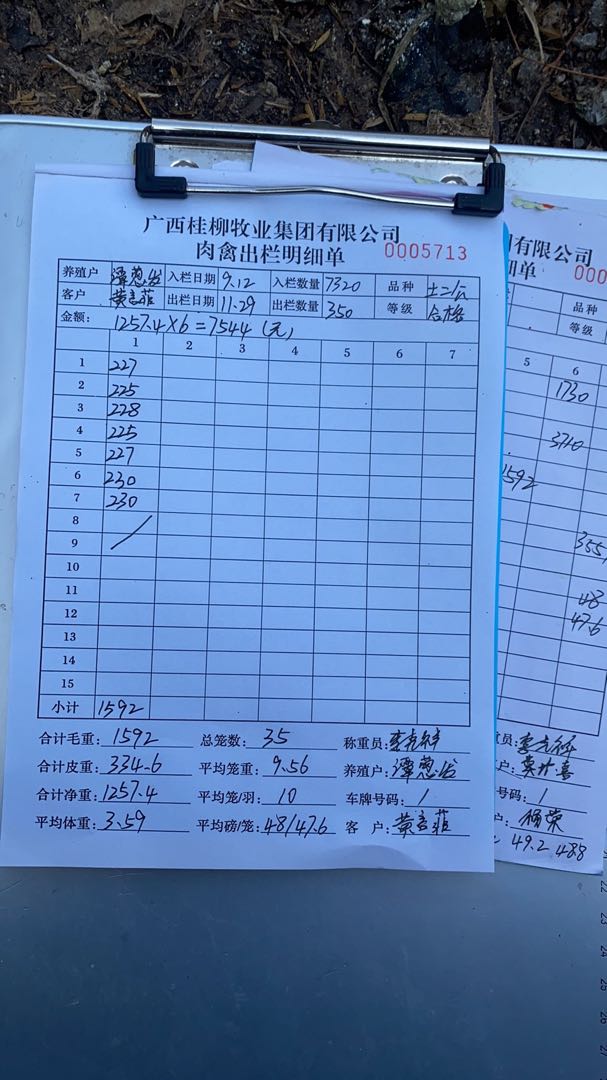 广西桂柳牧业集团有限公司
肉禽出栏明细单 0005713
养殖户 谭 入栏日期 9.12 入栏数量 7320 品种 土二
客户 黄 菲 出栏日期 11.29 出栏数量 350 等级 合格
金额: 1257.4×6=7544(元)
1 2 3 4 5 6 7
1 227
2 225
3 228
4 225
5 227
6 230
7 230
8
9
10
11
12
13
14
15
小计 1592
合计毛重: 1592 总笼数: 35 称重员:
合计皮重: 334.6 平均笼重: 9.56 养殖户: 谭
合计净重: 1257.4 平均笼/羽: 10 车牌号码: /
平均体重: 3.59 平均磅/笼: 48/47.6 客 户: 黄 菲
有限公司
细单 000
品种
等级
5 6
1730
3710
1592
355
48
47.6
员:
户:
号码: /
户: 荣
49.2 488
22
23
24
25
26
27